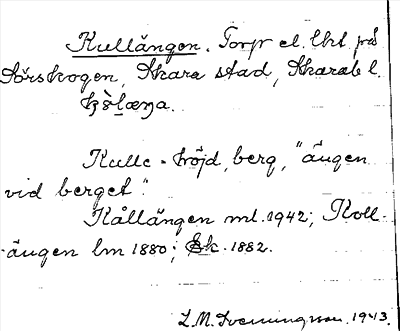 Kullängen. Torp el. lht på
Sörskogen, Skara stad, Skarab l.
Kulle = höjd, berg, "ängen
vid berget".
Kållängen ml. 1942; Koll-
ängen lm 1880; Sk. 1882.
L.M. Svenungsson 1943.